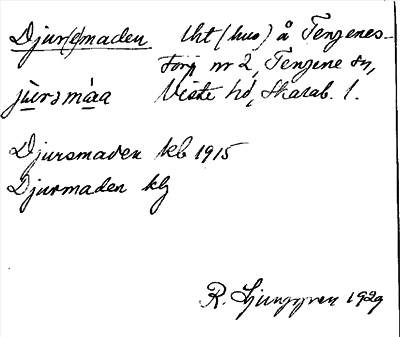 Djur(s)maden lht (hus) å Tengenes-
torp nr 2, Tengene sn,
jùrsmàa Viste hd, Skarab. l.
Djursmaden kb 1915
Djurmaden klj
R. Ljunggren 1929